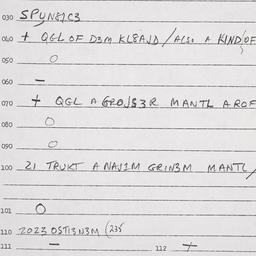 030 SPYN81C3
040 + QGL OF D3M KL8AJD / ALSO A KIND OF
050 O
060 –
070 + QGL A GROJS3R MANTL A ROF
080 O
090 O
100 21 TRUKT A NAJ1M GRIN3M MANTL /
101 O
110 2023 OSTI3N3M (235
111 – 112 +